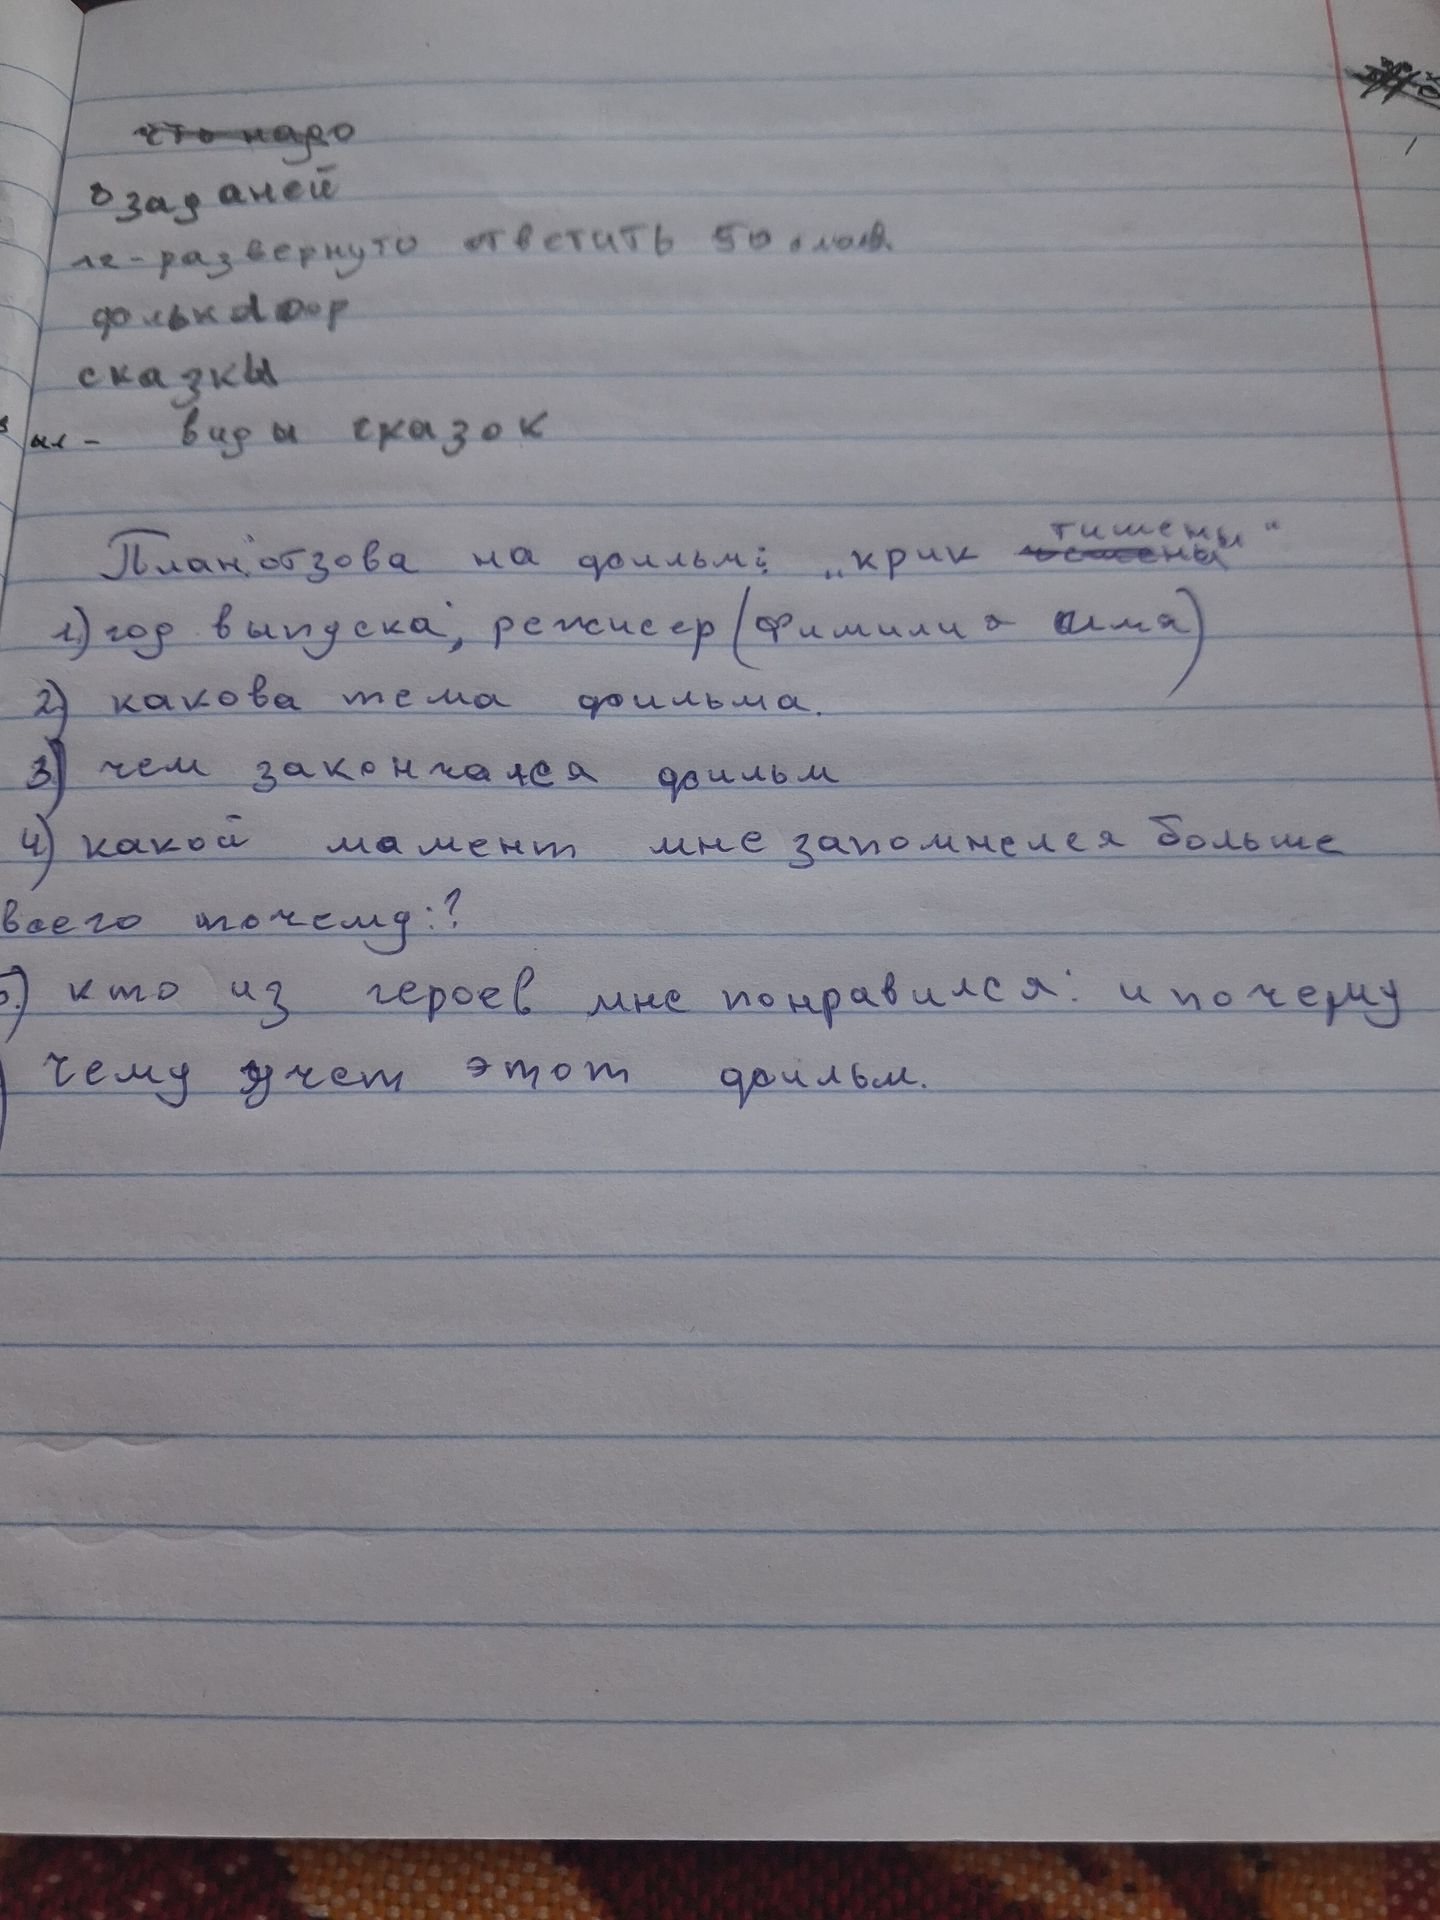 что надо
заданей
развернуто ответить 50 слов
фольклор
сказкы
виды сказок
План отзова на фильм: „крик тишены"
1.) год выпуска, режисер (Фимилия имя)
2) какова тема фильма.
3) чем закончался фильм
4) какой мамент мне запомнелся больше
всего почему:?
5.) кто из героев мне понравился: и почему
) чему учет этот фильм.